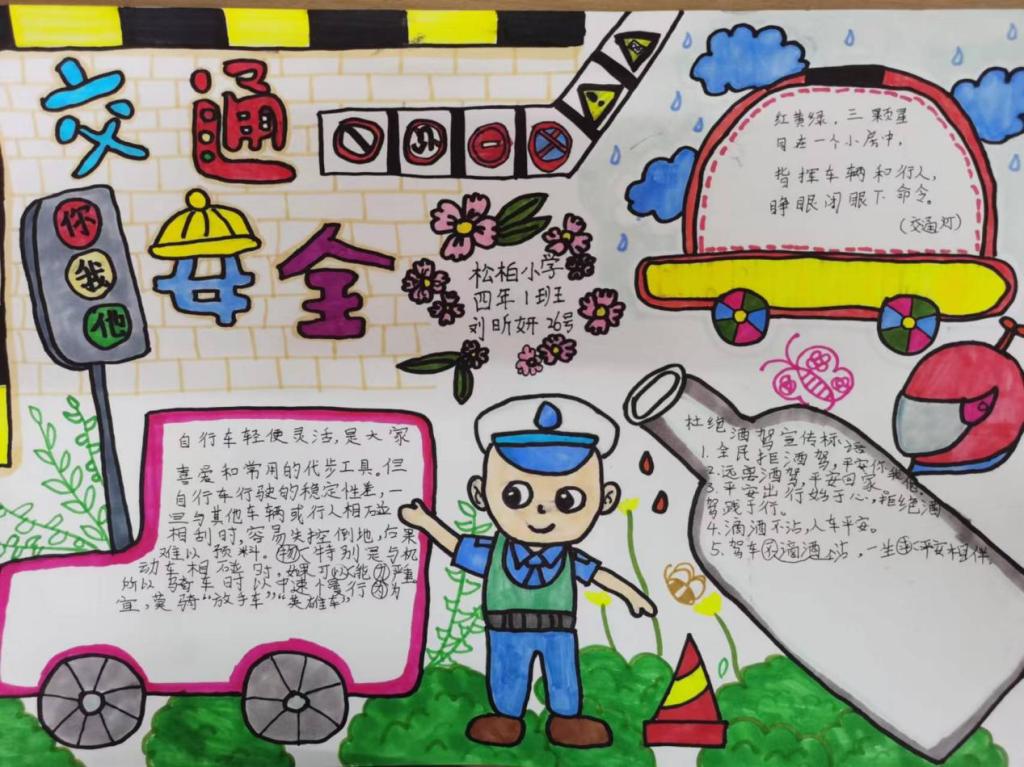 交通
安全
你
我
他
松柏小学
四年1班
刘昕妍 26号
红黄绿，三颗星
日在一个小层中，
指挥车辆和行人，
睁眼闭眼下命令。
（交通灯）
自行车轻便灵活，是大家
喜爱和常用的代步工具。但
自行车行驶的稳定性差，一
旦与其他车辆或行人相碰
相刮时，容易失控倒地，后果
难以预料。特别是与机
动车相碰时，如果可以能严重
所以骑车时以中速慢行为
宜，莫骑“放手车”“英雄车”
杜绝酒驾宣传标语
1.全民拒酒驾，平安你我他
2.远离酒驾，平安回家
3.平安出行始于心，拒绝酒
驾践于行。
4.滴酒不沾，人车平安。
5.驾车不滴酒上沾，一生平安相伴